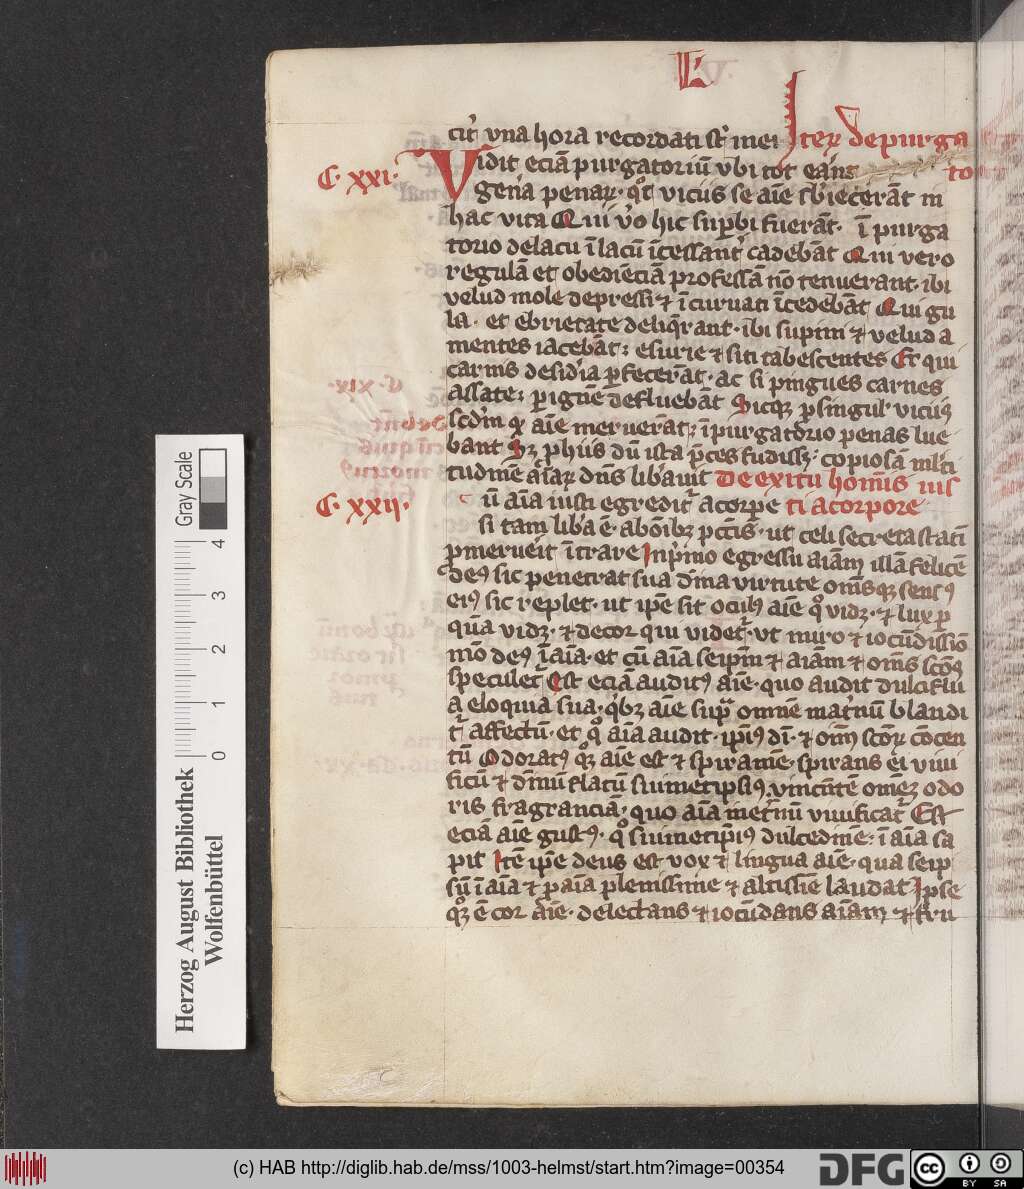 L
cit᷑ vna hora recordati st᷑ mei Iteꝝ de purga
C. xxi. Vidit eciā purgatoriū vbi tot eāns torio
gena penaꝝ. qͦt viciis se aīe sb̾iecerāt in
hac vita Qui v̾o hic suꝑbi fuerāt. ī purga
torio delacu ī lacū īcessant᷑ cadebāt Qui vero
regulā et obediēciā professā nō tenuerant. ibi
velud mole depressi ⁊ īcuruati īcedebāt Qui gu
la. et ebrietate deliq̄rant. ibi supini ⁊ velud a
mentes iacebāt; esurie ⁊ siti tabescentes Et qui
carnis desid̾ia ꝑfecerāt. ac si pingues carnes
assate; ꝑ ignē defluebāt Sicqꝫ ꝓ singul᷑ viciis
scdm̄ qͦ aīe meruerāt; ī purgatorio penas lue
bant Sꝫ ꝓ hiis dū ista p̄ces fudissꝫ; copiosā ml̄ti
tudinē aīaꝝ dn̄s lib̾auit De exitu hominis ius
C. xxii. cū aīa iusti egredit᷑ a corꝑe ti a corpore
si tam lib̾a ē. ab oībꝫ pcc̄is. ut celi secreta statī
ꝓmeruerit ītrare In p̄mo egressu aīam illā felicē
deꝰ sic penetrat sua diuina virtute omēsqꝫ sensꝰ
eiꝰ sic replet. ut ip̄e sit oculꝰ aīe qͦ vidꝫ. ⁊ lux ꝑ
quā vidꝫ. ⁊ decor qui videt᷑. vt miro ⁊ iocūdissio
mō deꝰ ī aīa. et cū aīa seip̄m ⁊ aīam ⁊ omēs scōs
speculet᷑ Est eciā auditꝰ aīe. quo audit dulciflu
a eloquia sua. qͥbꝫ aīe supͣ omnē mat̾nū blandi
t᷑ affectū. et qͦ aīa audit. ip̄ius dī. ⁊ oīm sc̄oꝝ cōcen
tū Odoratꝰ qͦꝫ aīe est ⁊ spiramē. spirans ei viui
ficū ⁊ diuinū flatū suimetipsiꝰ vincētē omēꝫ odo
ris fragranciā. quo aīa inet̾nū viuificat᷑ Est
eciā aīe gustꝰ. qͦ suimetip̄iꝰ dulcedinē. ī aīa sa
pit Itē ip̄e deus est vox ⁊ lingua aīe. qua seip
sū ī aīa ⁊ ꝑ aīa plenissime ⁊ altissiē laudat Ip̄se
qͦꝫ ē cor aīe. delectans ⁊ iocūdans aīam ⁊ fru
Herzog August Bibliothek
Wolfenbüttel
Gray Scale
0 1 2 3 4
(c) HAB http://diglib.hab.de/mss/1003-helmst/start.htm?image=00354
DFG
cc
BY SA